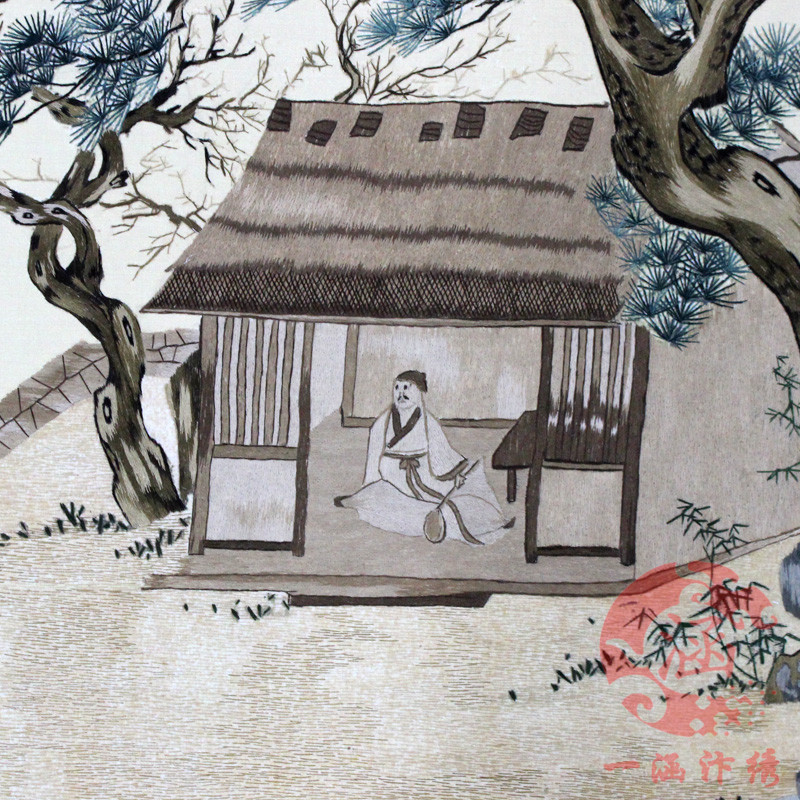 涵
一涵汴绣